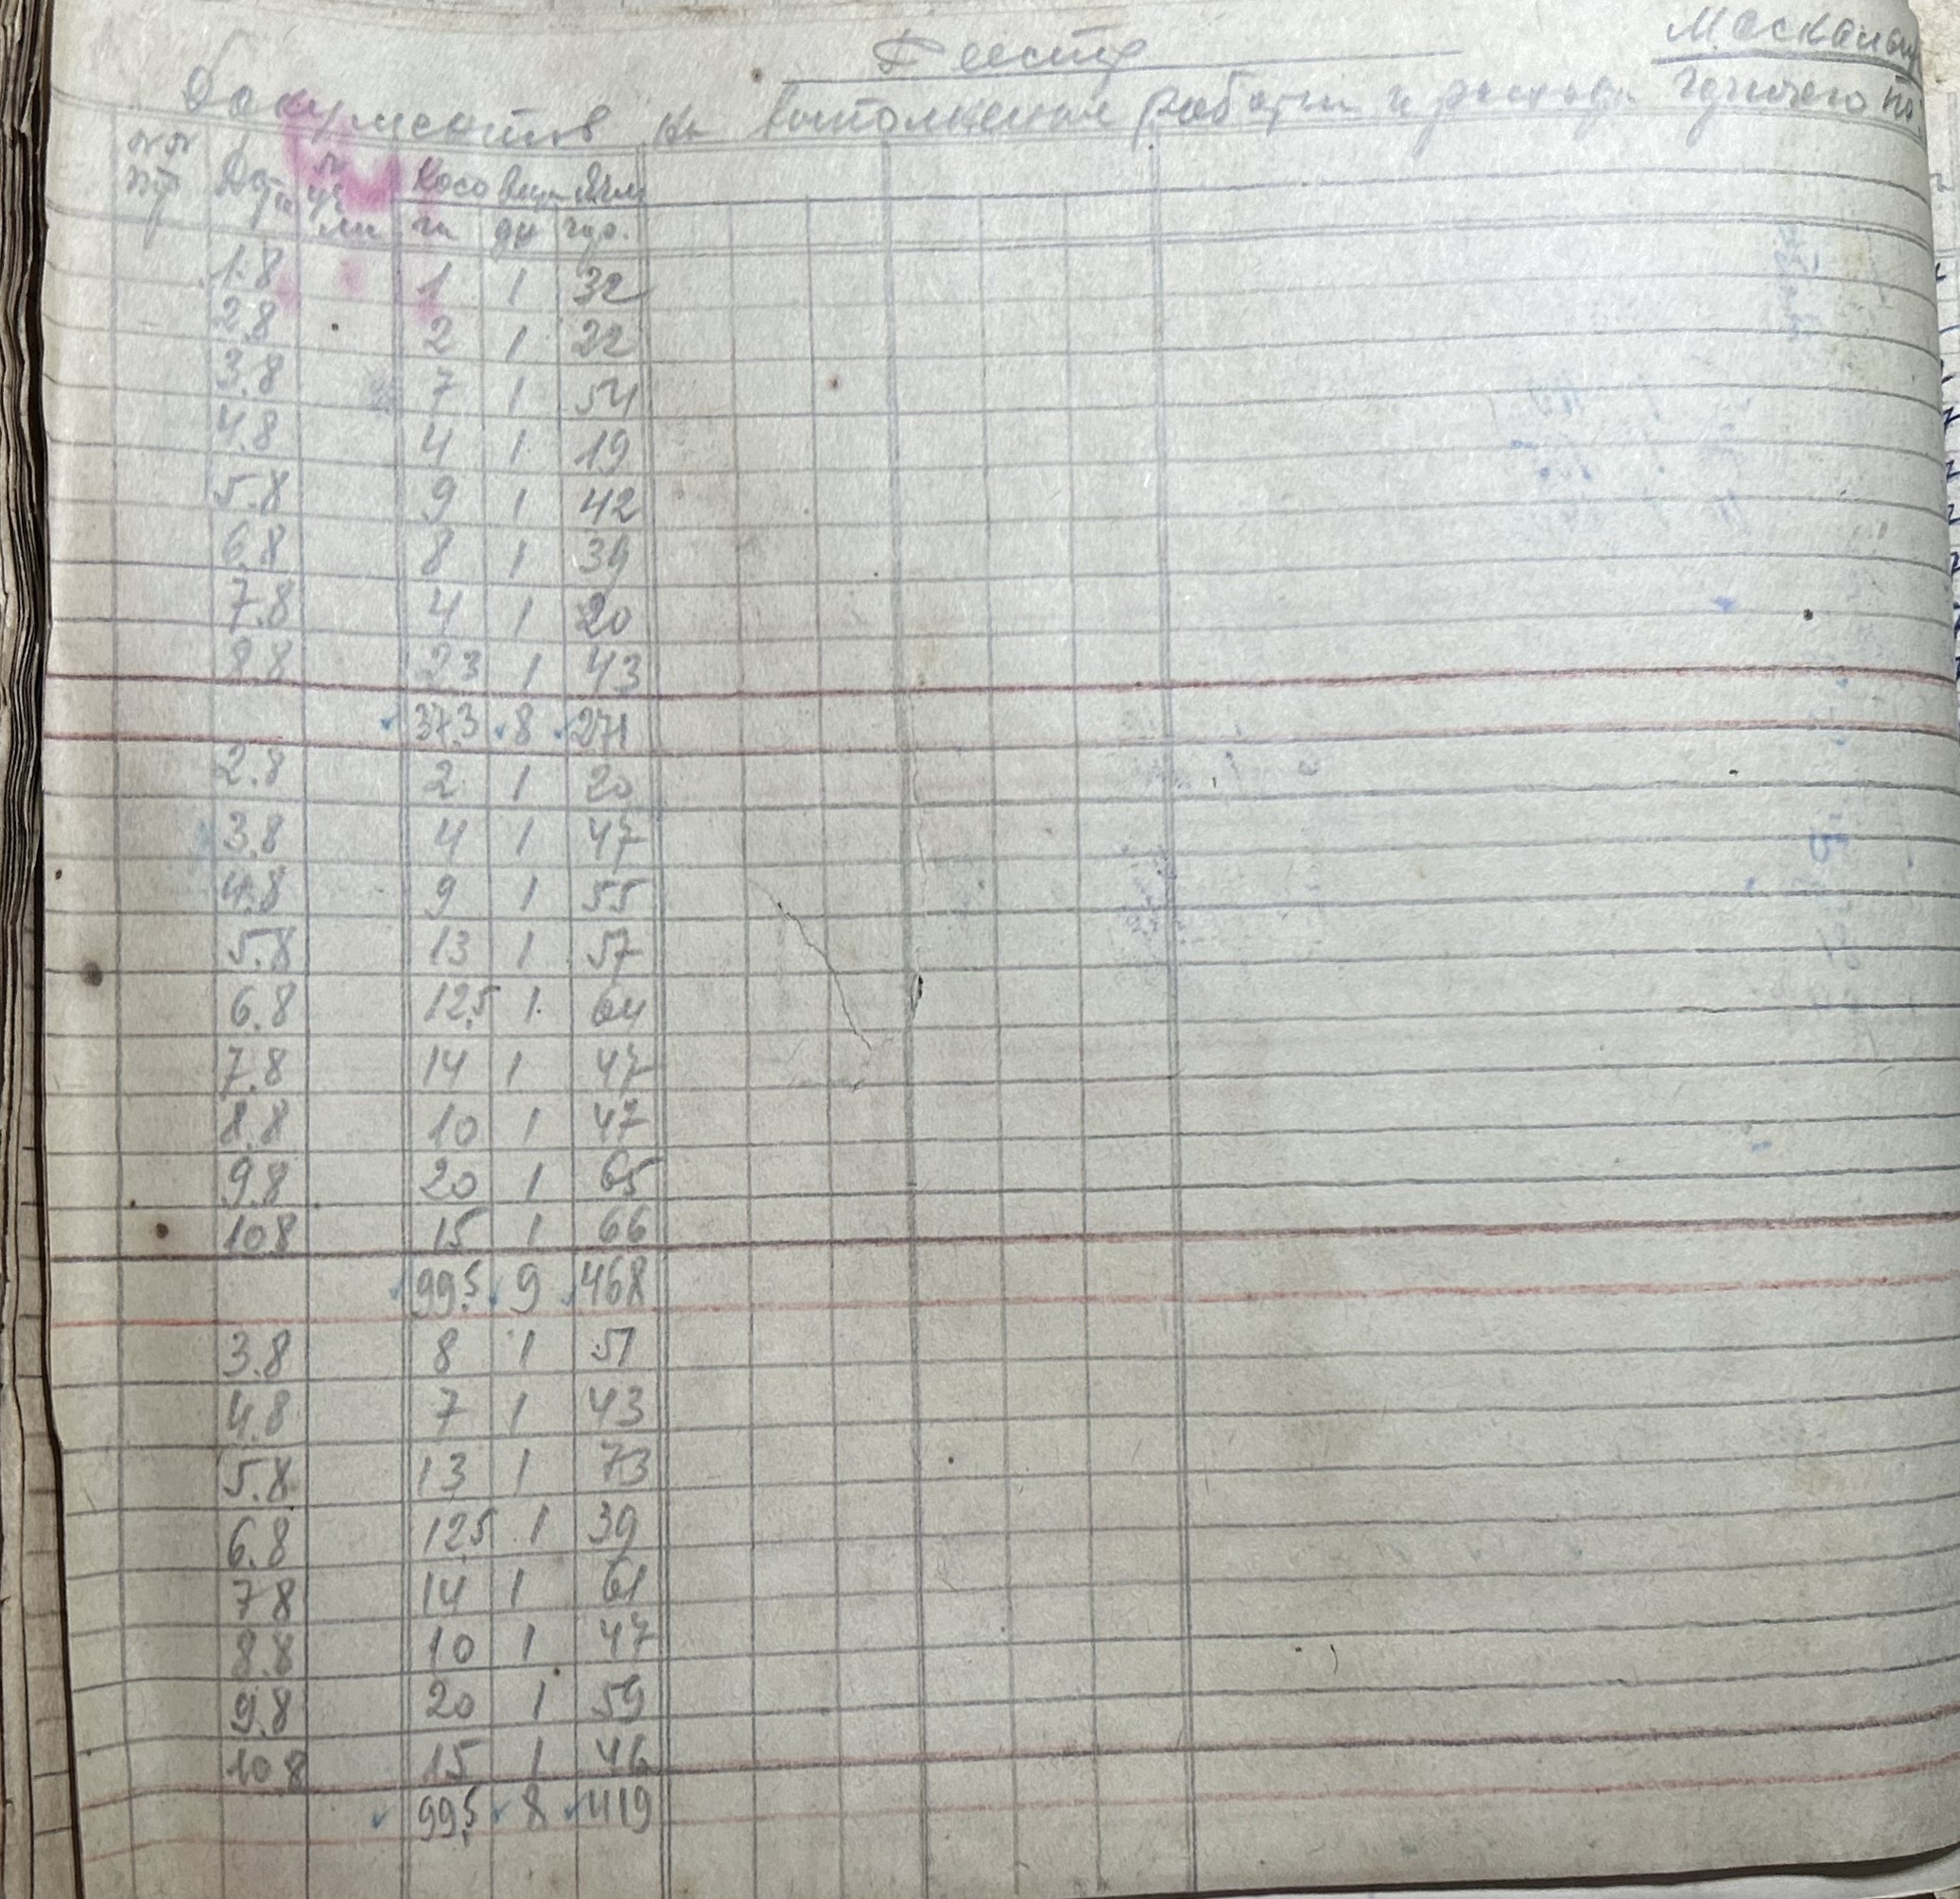 Реестр
Документов на выполнение работы и расхода горючего по
№№ Дата № Косо
га дн гор.
1.8 1 1 32
2.8 2 1 22
3.8 7 1 54
4.8 4 1 19
5.8 9 1 42
6.8 8 1 39
7.8 4 1 20
8.8 2.3 1 43
37.3 8 271
2.8 2 1 20
3.8 4 1 47
4.8 9 1 55
5.8 13 1 57
6.8 12,5 1 64
7.8 14 1 47
8.8 10 1 47
9.8 20 1 65
10.8 15 1 66
99.5 9 468
3.8 8 1 51
4.8 7 1 43
5.8 13 1 73
6.8 12,5 1 39
7 8 14 1 61
8.8 10 1 47
9.8 20 1 59
10 8 15 1 46
99,5 8 419